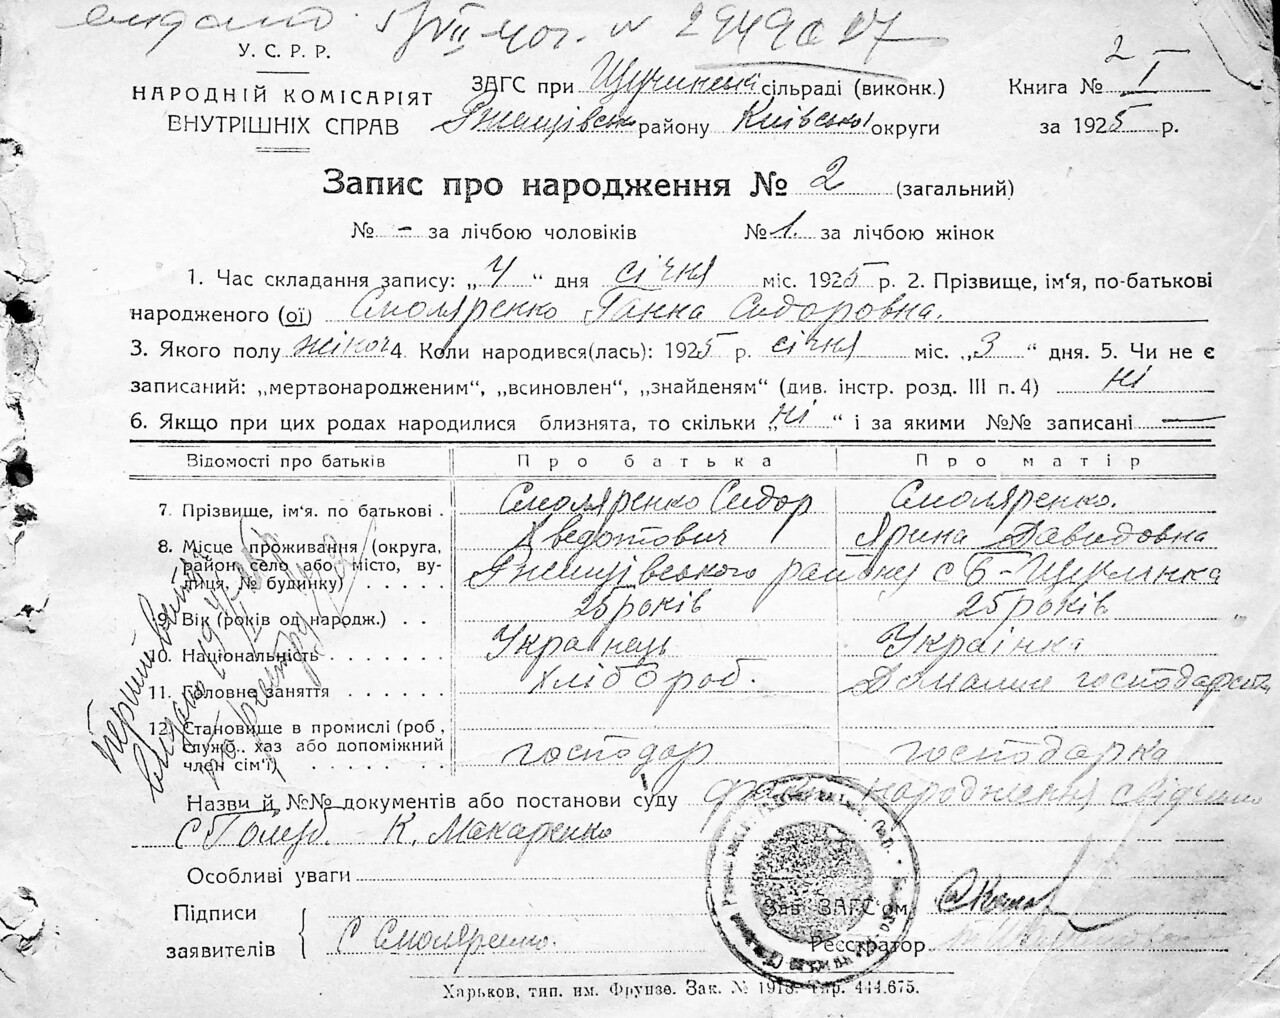 видано 5/VII-40г. № 2949
У. С. Р. Р.
НАРОДНІЙ КОМІСАРІЯТ
ВНУТРІШНІХ СПРАВ
ЗАГС при Щучинській сільраді (виконк.)
Ржищівськ району Київської округи
Книга № 2 I
за 1925 р.
Запис про народження № 2 (загальний)
№ - за лічбою чоловіків № 1. за лічбою жінок
1. Час складання запису: „4“ дня січня міс. 1925 р. 2. Прізвище, ім‘я, по-батькові
народженого (ої) Смоляренко Ганна Сидоровна.
3. Якого полу жіноч 4. Коли народився(лась): 1925 р. січня міс. „3“ дня. 5. Чи не є
записаний: „мертвонародженим“, „всиновлен“, „знайденям“ (див. інстр. розд. III п. 4) ні
6. Якщо при цих родах народилися близнята, то скільки „ні“ і за якими №№ записані —
Відомості про батьків Про батька Про матір
7. Прізвище, ім‘я. по батькові . Смоляренко Сидор Смоляренко.
Хведотович Ярина Давидовна
8. Місце проживання (округа,
район, село або місто, ву-
лиця, № будинку) Ржищівського району с Б-Щучинка
9. Вік (років од народж.) . . 25 років 25 років
10. Національність . . . . . . Українець Українка
11. Головне заняття . . . . . . Хлібороб. Домашнє господарств
12. Становище в промислі (роб.,
служб., хаз або допоміжний
член сім‘ї) . . . . . . господар господарка
Назви й №№ документів або постанови суду факт народження свідчили
С Голуб. К. Макаренко
Особливі уваги
Підписи
заявителів С Смоляренко.
Зав ЗАГС‘ом
Реєстратор
Харьков, тип. им. Фрунзе. Зак. № 1918. Тир. 444.675.